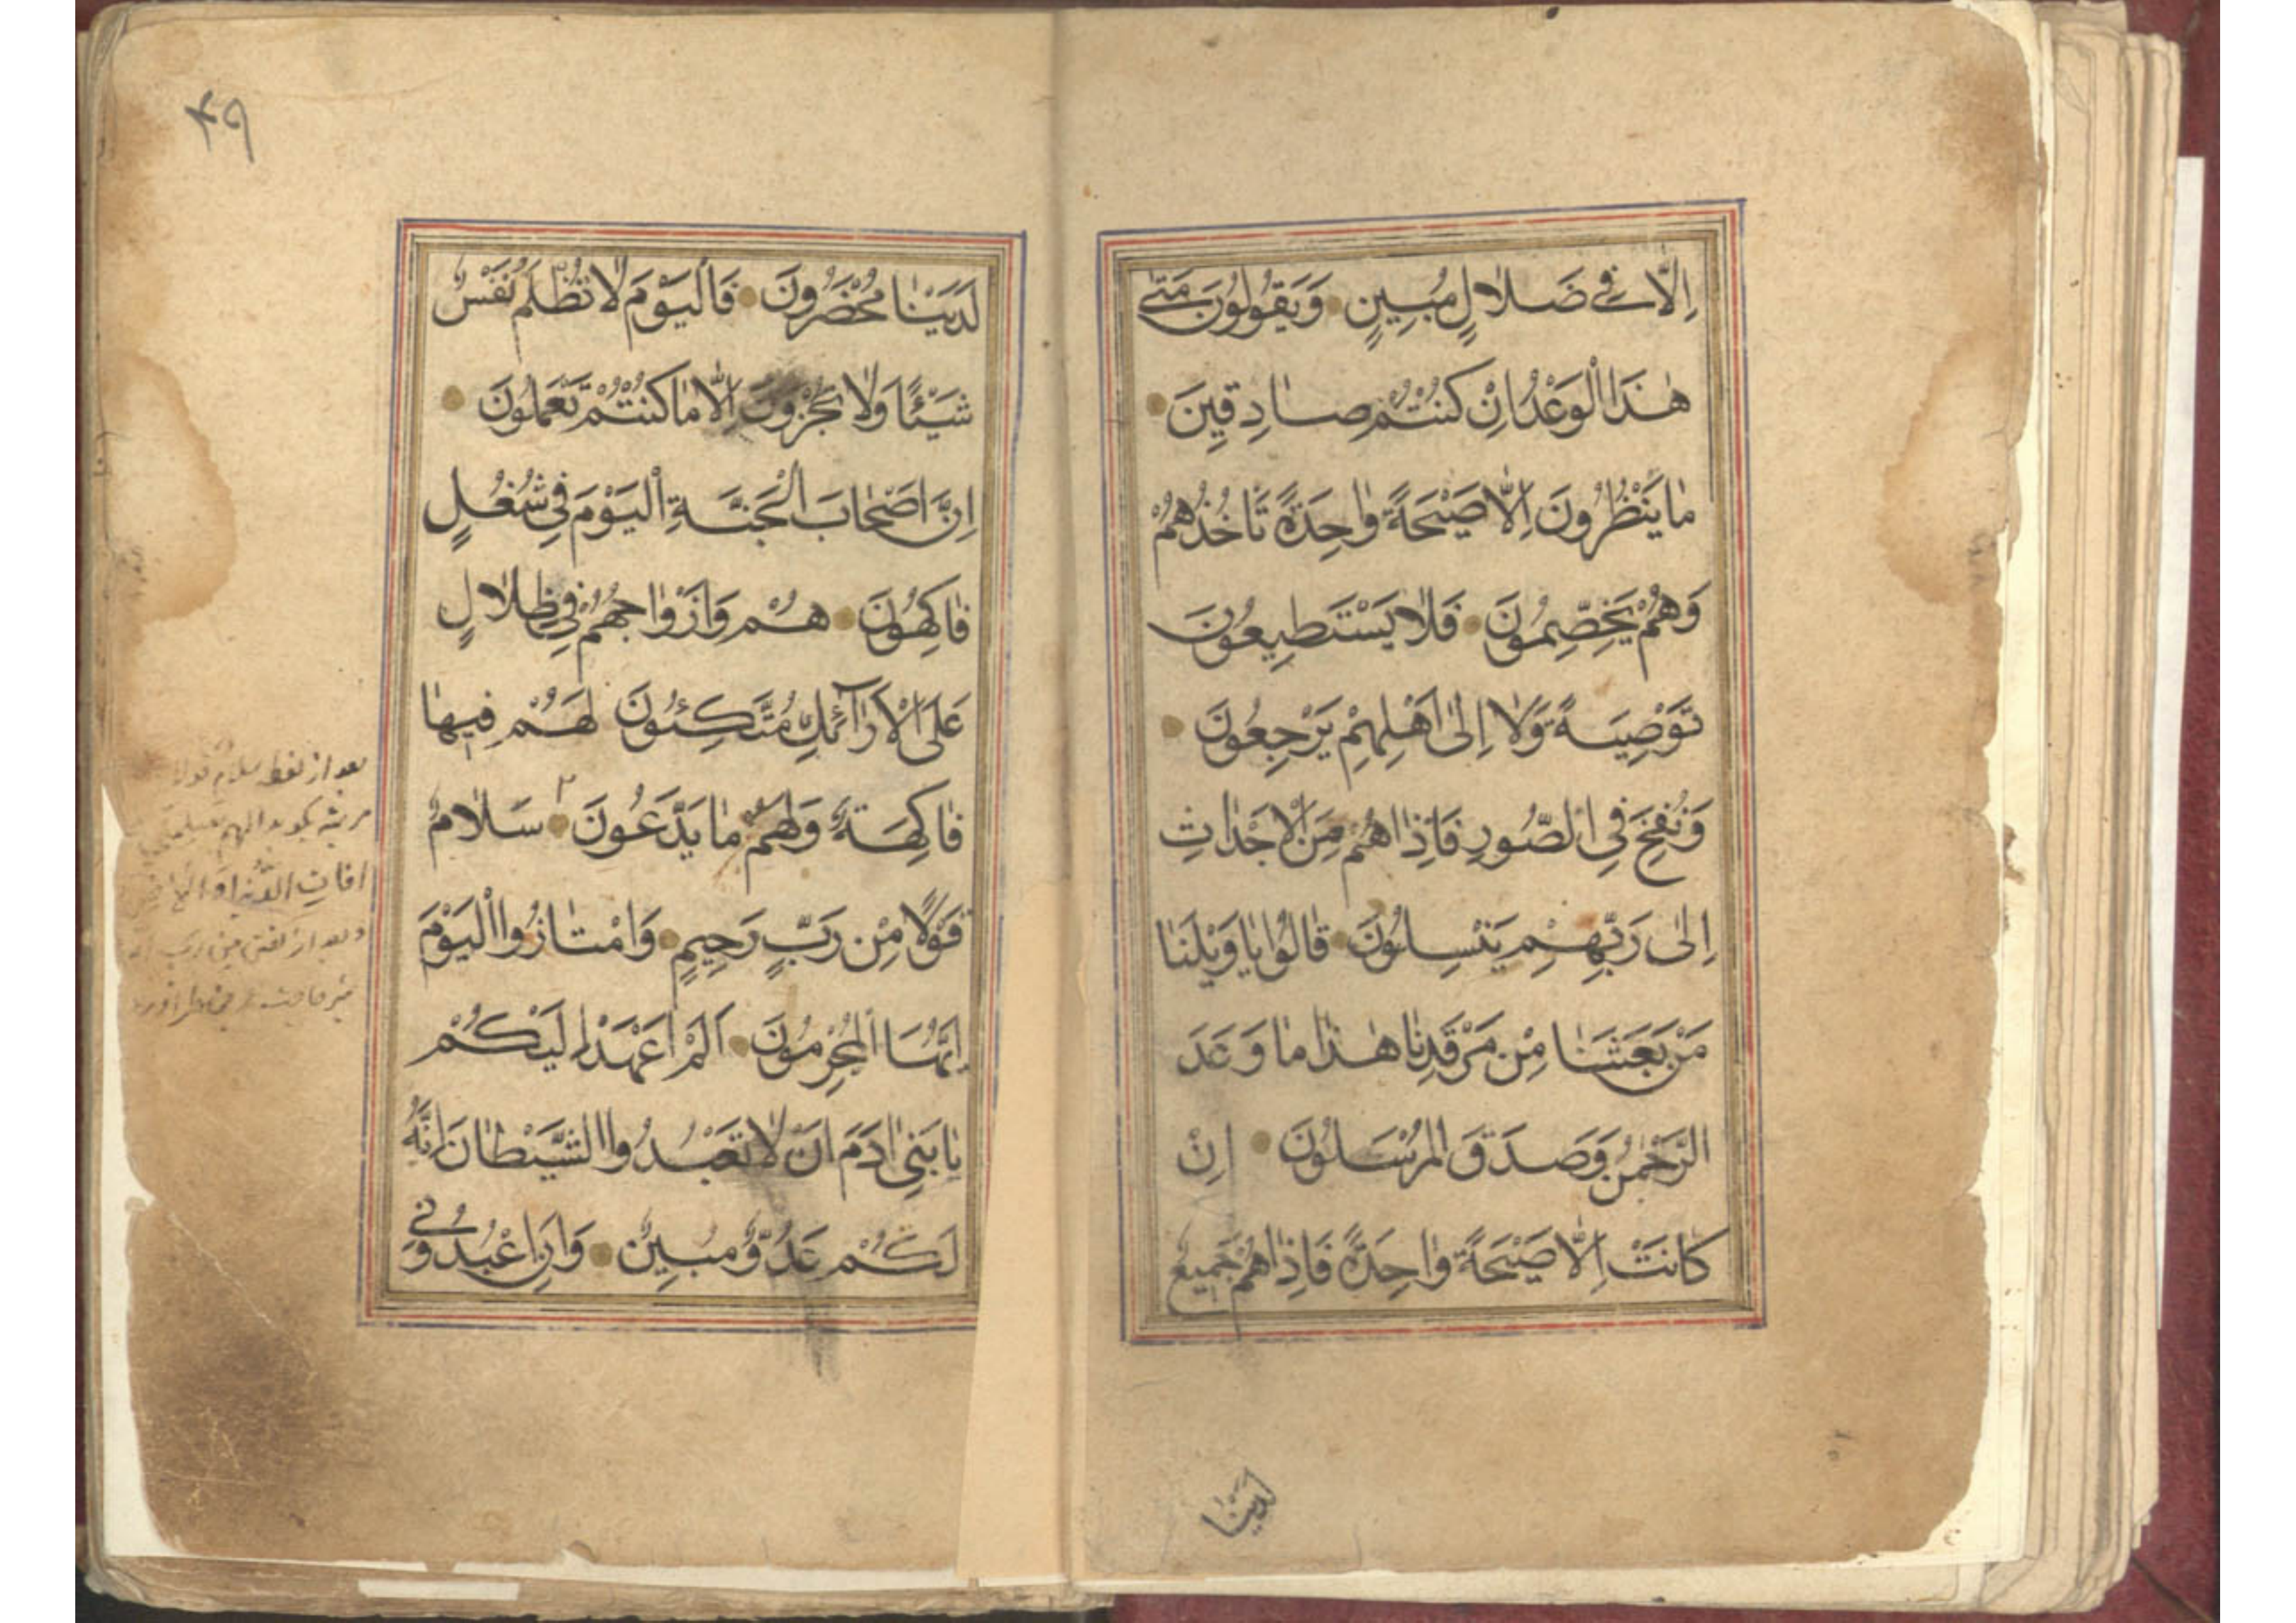 اِلَّا فِي ضَلَالٍ مُبِينٍ وَيَقُولُونَ مَتٰى
هٰذَا الْوَعْدُ اِنْ كُنْتُمْ صَادِقِينَ
مَا يَنْظُرُونَ اِلَّا صَيْحَةً وٰاحِدَةً تَاخُذُهُمْ
وَهُمْ يَخِصِّمُونَ فَلَا يَسْتَطِيعُونَ
تَوْصِيَةً وَلَا اِلٰى اَهْلِهِمْ يَرْجِعُونَ
وَنُفِخَ فِي الصُّورِ فَاِذَا هُمْ مِنَ الْاَجْدٰاثِ
اِلٰى رَبِّهِمْ يَنْسِلُونَ قٰالُوا يٰا وَيْلَنٰا
مَنْ بَعَثَنٰا مِنْ مَرْقَدِنٰا هٰذٰا مٰا وَعَدَ
الرَّحْمٰنُ وَصَدَقَ الْمُرْسَلُونَ اِنْ
كٰانَتْ اِلَّا صَيْحَةً وٰاحِدَةً فَاِذٰا هُمْ جَمِيعٌ
لَدَيْنٰا
۴۹
لَدَيْنٰا مُحْضَرُونَ فَالْيَوْمَ لَا تُظْلَمُ نَفْسٌ
شَيْئًا وَلَا تُجْزَوْنَ اِلَّا مٰا كُنْتُمْ تَعْمَلُونَ
اِنَّ اَصْحٰابَ الْجَنَّةِ الْيَوْمَ فِي شُغُلٍ
فٰاكِهُونَ هُمْ وَاَزْوٰاجُهُمْ فِي ظِلَالٍ
عَلَى الْاَرَآئِكِ مُتَّكِئُونَ لَهُمْ فِيهٰا
فٰاكِهَةٌ وَلَهُمْ مٰا يَدَّعُونَ سَلَامٌ
قَوْلًا مِنْ رَبٍّ رَحِيمٍ وَامْتٰازُوا الْيَوْمَ
اَيُّهَا الْمُجْرِمُونَ اَلَمْ اَعْهَدْ اِلَيْكُمْ
يٰا بَنِي اٰدَمَ اَنْ لَا تَعْبُدُوا الشَّيْطٰانَ اِنَّهُ
لَكُمْ عَدُوٌّ مُبِينٌ وَاَنِ اعْبُدُونِي
بعد از لفظ سلام قولا